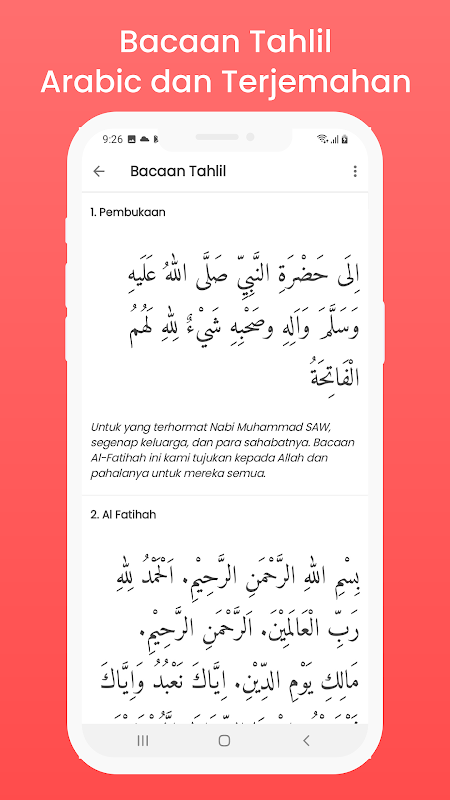 Bacaan Tahlil
Arabic dan Terjemahan
9:26
Bacaan Tahlil
1. Pembukaan
اِلَى حَضْرَةِ النَّبِيِّ صَلَّى اللهُ عَلَيهِ
وَسَلَّمَ وَاَلِهِ وصَحْبِهِ شَيْءٌ لِلهِ لَهُمُ
الْفَاتِحَةُ
Untuk yang terhormat Nabi Muhammad SAW,
segenap keluarga, dan para sahabatnya. Bacaan
Al-Fatihah ini kami tujukan kepada Allah dan
pahalanya untuk mereka semua.
2. Al Fatihah
بِسْمِ اللهِ الرَّحْمَنِ الرَّحِيْمِ. اَلْحَمْدُ لِلهِ
رَبِّ الْعَالَمِيْنَ. اَلرَّحْمَنِ الرَّحِيْمِ.
مَالِكِ يَوْمِ الدِّيْنِ. اِيَّاكَ نَعْبُدُ وَاِيَّاكَ